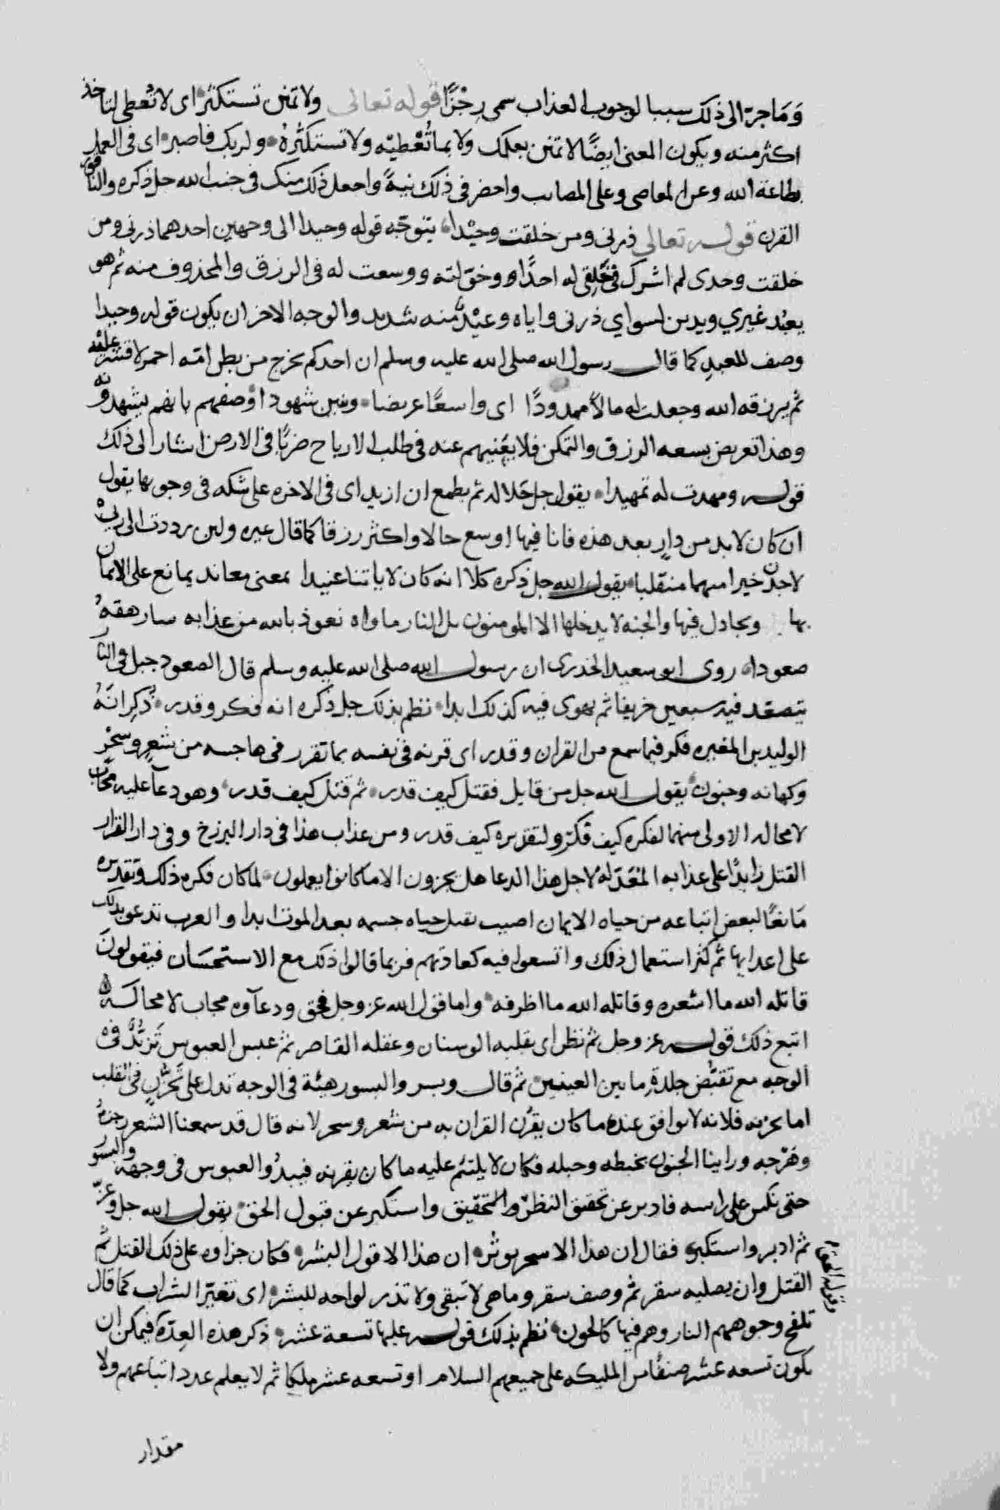 وَمَا جرّ الى ذلك سببا لوجوب العذاب سمى رِجْزًا قوله تعالى ولا تمنن تستكثر اى لا تُعطى لتاخذ
اكثر منه ويكون المعنى ايضًا لا تمنن بعملك ولا بما تُعْطيه ولا تستكثره ولربك فاصبر اى فى العمل
بطاعة الله وعن المعاصى وعلى المصائب واحضر فى ذلك نيةً واجعل ذلك منك فى جنب الله جل ذكره والناقور
القرن قوله تعالى ذرنى ومن خلقت وحيْدا يتوجّه قوله وحيدا الى وجهين احدهما ذرنى ومن
خلقت وحدى لم اشرك فى خلقى له احدًا وخوّلته ووسعت له فى الرزق والمحذوف منه ثم هو
يعبُد غيري ويدين لسواي ذرنى واياه وعيْد منه شديد والوجه الاخر ان يكون قوله وحيدا
وصف للعبد كما قال رسول الله صلى الله عليه وسلم ان احدكم يخرج من بطن امّه احمر لا قشر عليه
ثم يرزقه الله وجعلت له مالا ممدودًا اى واسعًا عريضا وبنين شهودا وُصفهم بانهم يشهدونه
وهذا تعريض بسعه الرزق والتمكن فلا يغنيهم عنه فى طلب الارباح ضربًا فى الارض اشار الى ذلك
قوله ومهدت له تمهيدا يقول جل جلاله ثم يطمع ان ازيد اى فى الاخره على شكه فى وجوبها يقول
ان كان لابد من دارٍ بعد هذه فانا فيها اوسع حالا واكثر رزقا كما قال غيره ولين رددت الى ربى
لاجدن خيرا منهما منقلبا يقول الله جل ذكره كلا انه كان لاياتنا عنيدا بمعنى معاند يمانع على الايمان
بها ويجادل فيها والجنه لا يدخلها الا المومنون بل النار ماواه نعوذ بالله من عذابه سارهقهُ
صعودا روى ابو سعيد الخدرى ان رسول الله صلى الله عليه وسلم قال الصعود جبل فى النار
يتصعّد فيه سبعين خريفا ثم يهوى فيه كذلك ابدا نظم بذلك جل ذكره انه فكر وقدر ذُكِرَ انّهُ
الوليد بن المغيره فكر فيما سمع من القران وقدر اى قرنه فى نفسه بما تقرر فى هاجسه من شعرٍ وسحْر
وكهانه وجنون يقول الله جل من قايل فقتل كيف قدر ثم قتل كيف قدر وهو دعاَ عليه مجَاب
لا محاله الاولى منهما لفكره كيف فكّر ولتقديره كيف قدر ومن عذاب هذا فى دار البرزخ وفى دار القرار
القتل زايدًا على عذابه المُعَدّ له لاجل هذا الدعا هل يجزون الا ما كانوا يعملون لما كان فكره ذلك وتقديره
مَانعًا لبعض اتباعه من حياه الايمان اصيب بقتل حياه جسمه بعد الموت ابدا والعرب تدعو بذلك
على اعدايها ثم كثر استعمال ذلك واتسعوا فيه كعادتهم فربما قالوا ذلك مع الاستحسَان فيقولونَ
قاتله الله ما اشعره وقاتله الله ما اظرفه واما قول الله عز وجل فحق ودعآوه مجاب لا محاله
اتبع ذلك قوله عز وجل ثم نظر اى بقلبه الوسنان وعقله القاصر ثم عبس العبوس
الوجه مع تقبّض جلدةِ ما بين العينين ثم قال وبسر والبسور هيئة فى الوجه تدل على تحزن فى القلب
اما بحزنه فلانه لا يوافق عنده ما كان يقرن القران به من شعر وسحر لانه قال قد سمعنا الشعر رجزهُ
وهَزجه وراينا الجنون بخبطه وخبله فكان لا يلتئم عليه ما كان يقرنه فيبدُو العبوس فى وجهه والبسور
حتى نكس على راسه فادبر عن تحقيق النظر والتحقيق واستكبر عن قبول الحق يقول الله جل وعزّ
ثم ادبر واستكبر فقال ان هذا الا سحر يوثر ان هذا الا قول البشر فكان جزاوه على ذلك القتل ثم
القتل وان يصليه سقر ثم وصف سقر وما هى لا تبقى ولا تذر لواحه للبشر اى تغيّر الشراب كما قال
تلفح وجوههم النار وهم فيها كالحون نُظم بذلك قوله عليها تسعة عشر ذكر هذه العِدّة فيمكن ان
يكون تسعه عشر صنفًا من المليكه على جميعهم السلام او تسعه عشر ملكا ثم لا يعلم عدد اتباعهم ولا
مقدار